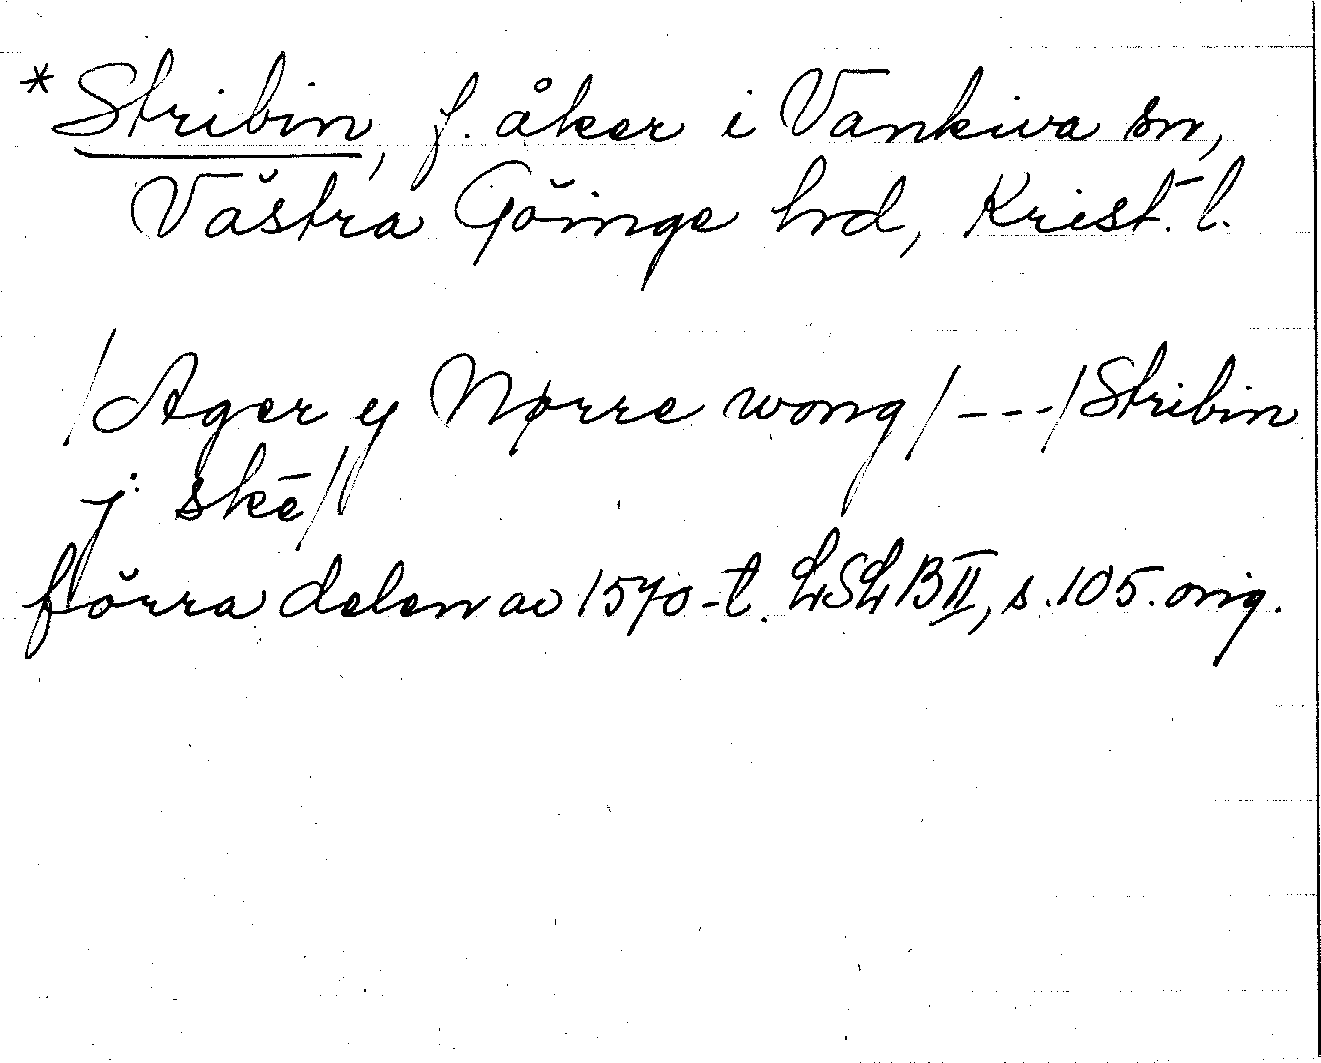 *Stribin, f. åker i Vankiva sn,
Västra Göinge hrd, Krist. l.
/Ager y Nørre wong/ --- /Stribin
j skē/
förra delen av 1570-t. LSLB II, s. 105. orig.